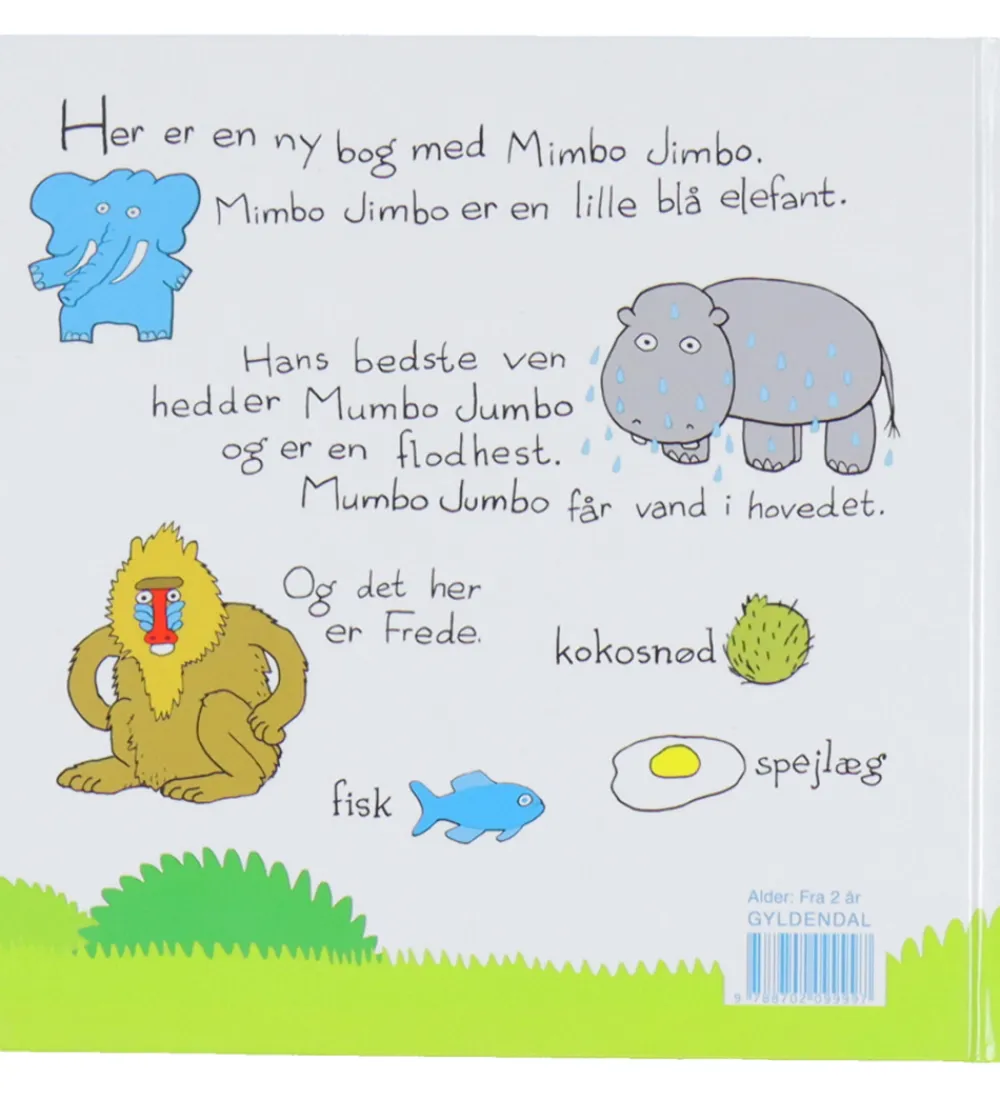 Her er en ny bog med Mimbo Jimbo.
Mimbo Jimbo er en lille blå elefant.
Hans bedste ven
hedder Mumbo Jumbo
og er en flodhest.
Mumbo Jumbo får vand i hovedet.
Og det her
er Frede.
kokosnød
spejlæg
fisk
Alder: Fra 2 år
GYLDENDAL
9 788702 099997